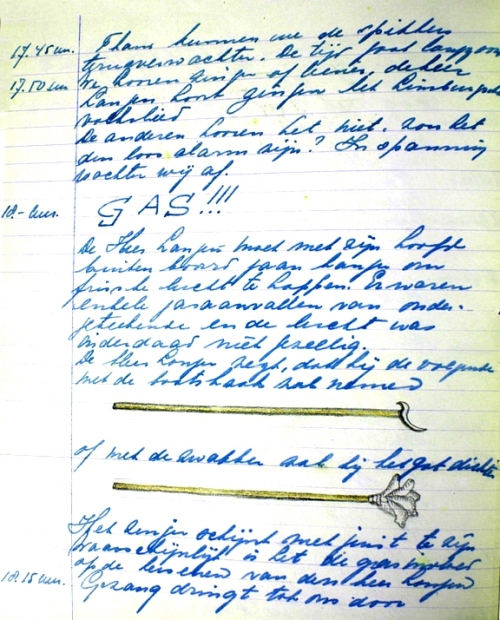 17.45 uur. Thans kunnen we de spikkers
terugverwachten. De tijd gaat langzaam
17.50 uur we hooren zingen of liever, de heer
Langen hoort zingen het Limburgsch
volkslied
De anderen hooren het niet. Zou het
dan loos alarm zijn? In spanning
wachten wij af.
18.- uur. GAS!!!
De Heer Langen moet met zijn hoofd
buiten boord gaan hangen om
frissche lucht te happen. Er waren
enkele gasaanvallen van onder-
geteekende en de lucht was
inderdaad niet gezellig.
De Heer Langen zegt, dat hij de volgende
met de bootshaak zal nemen
of met de zwabber zal hij het gat dichten
Het zingen schijnt niet juist te zijn
waarschijnlijk is het die gas
op de hersenen van den heer Langen
18.15 uur. Gezang dringt tot ons door